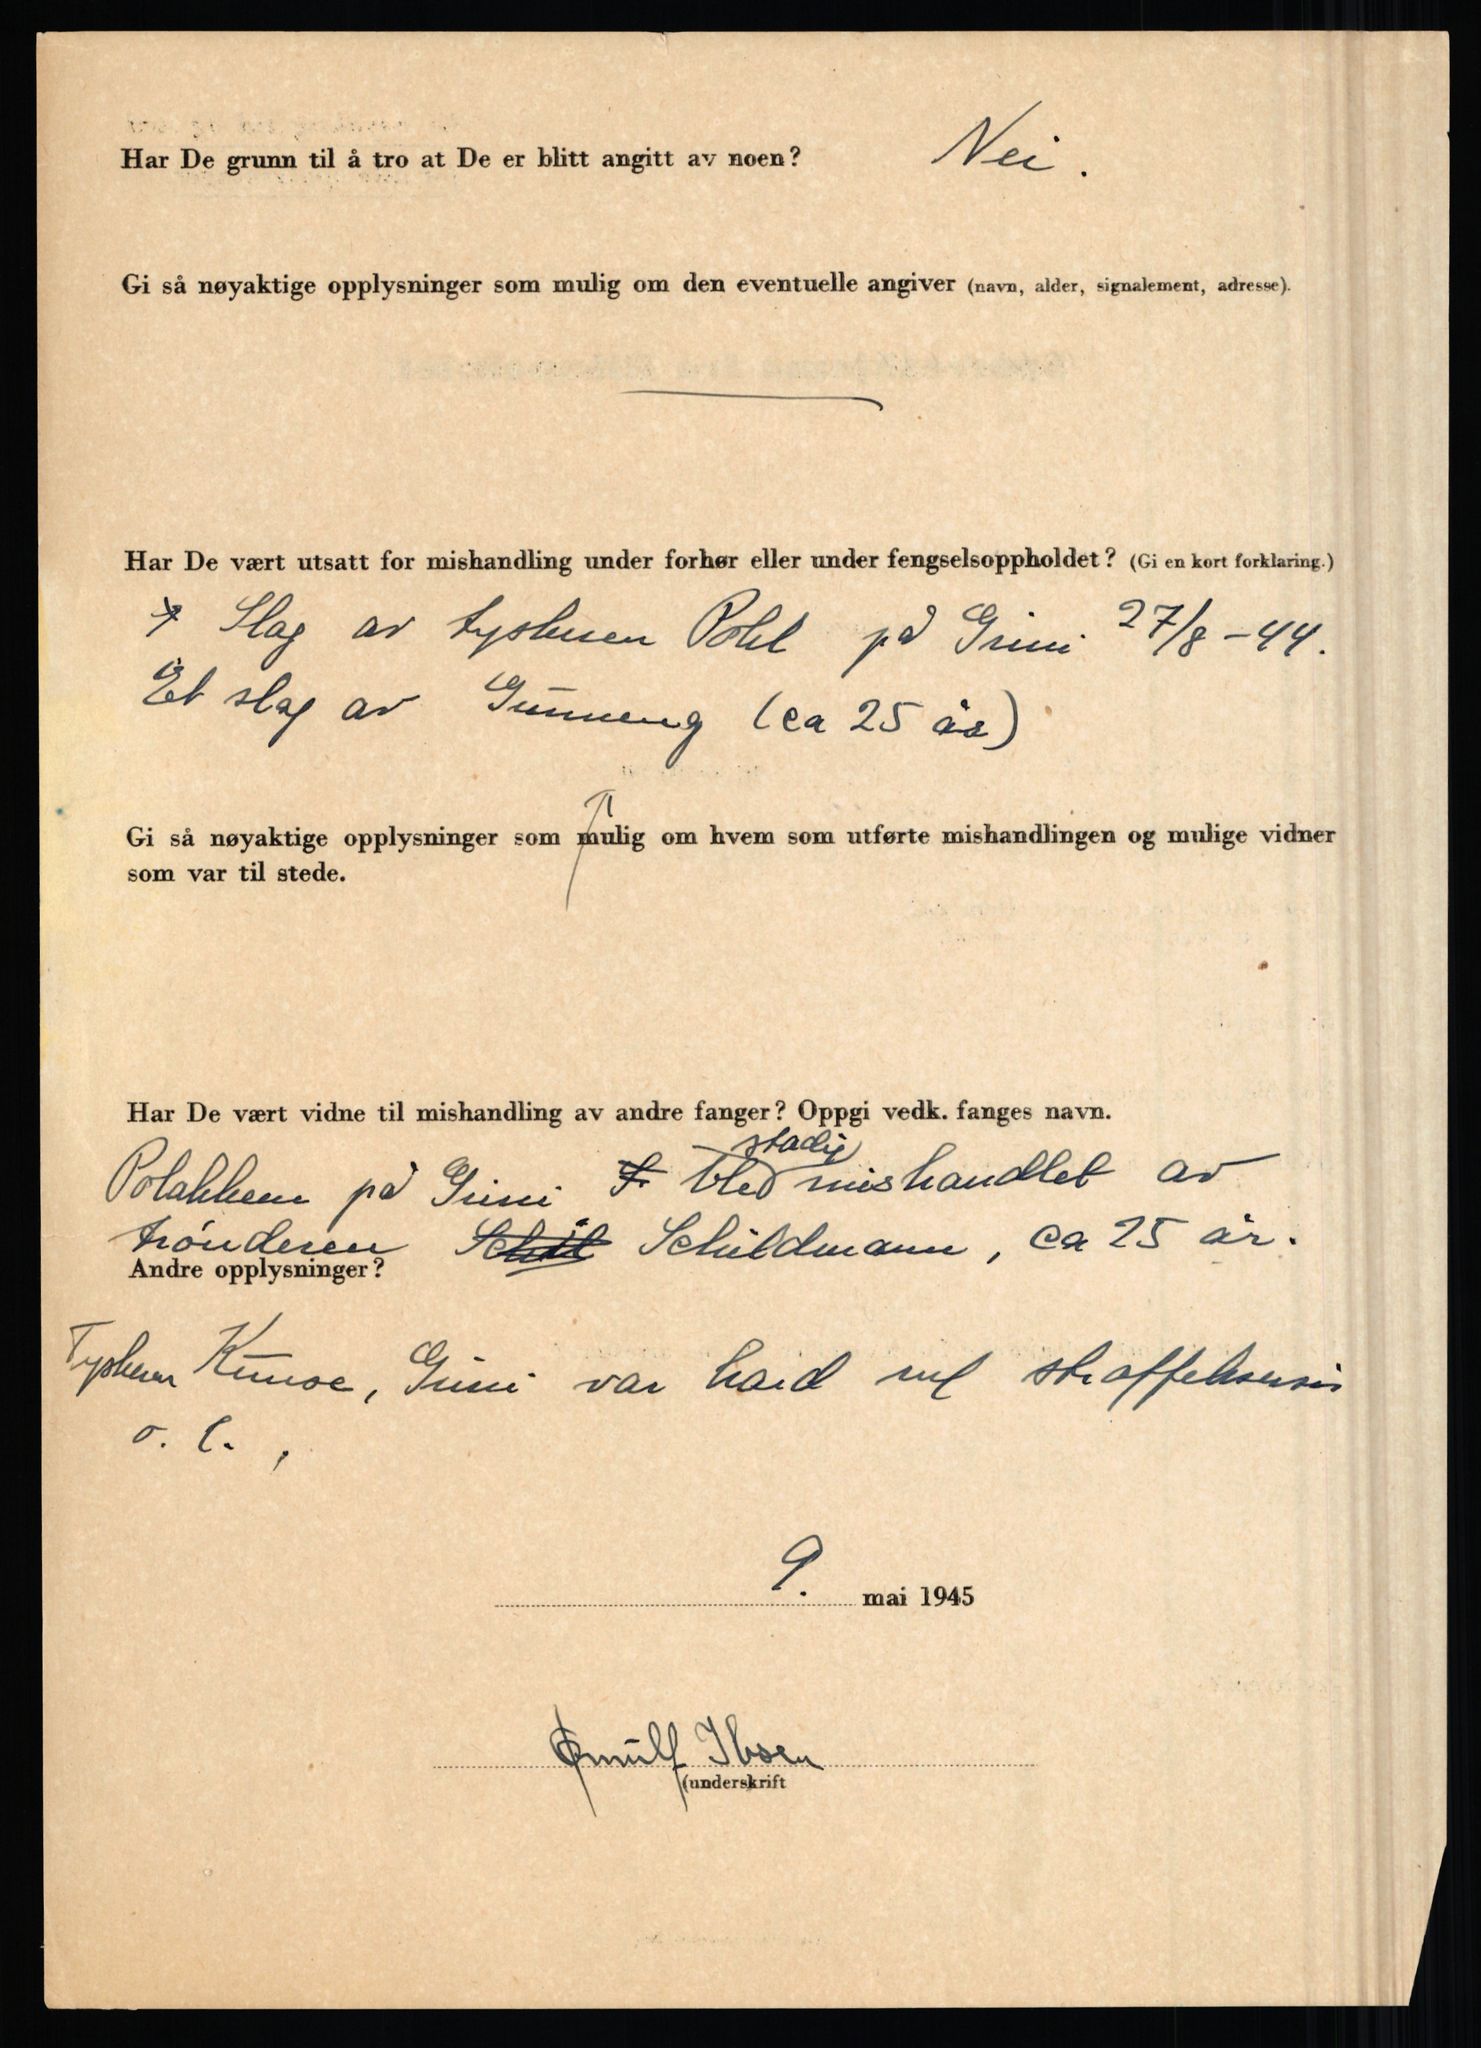 Har De grunn til å tro at De er blitt angitt av noen? Nei.
Gi så nøyaktige opplysninger som mulig om den eventuelle angiver (navn, alder, signalement, adresse).
Har De vært utsatt for mishandling under forhør eller under fengselsoppholdet? (Gi en kort forklaring.)
Slag av tyskeren Pohl på Grini 27/8-44.
Et slag av (ca 25 år)
Gi så nøyaktige opplysninger som mulig om hvem som utførte mishandlingen og mulige vidner
som var til stede.
Har De vært vidne til mishandling av andre fanger? Oppgi vedk. fanges navn.
stadig
Polakkene på Grini bled mishandlet av
trønderen Schildmann, ca 25 år.
Andre opplysninger?
Tyskeren Kunoe, Grini var hard ved straffeksersis
o. l.
9. mai 1945
Ørnulf Ibsen
(underskrift